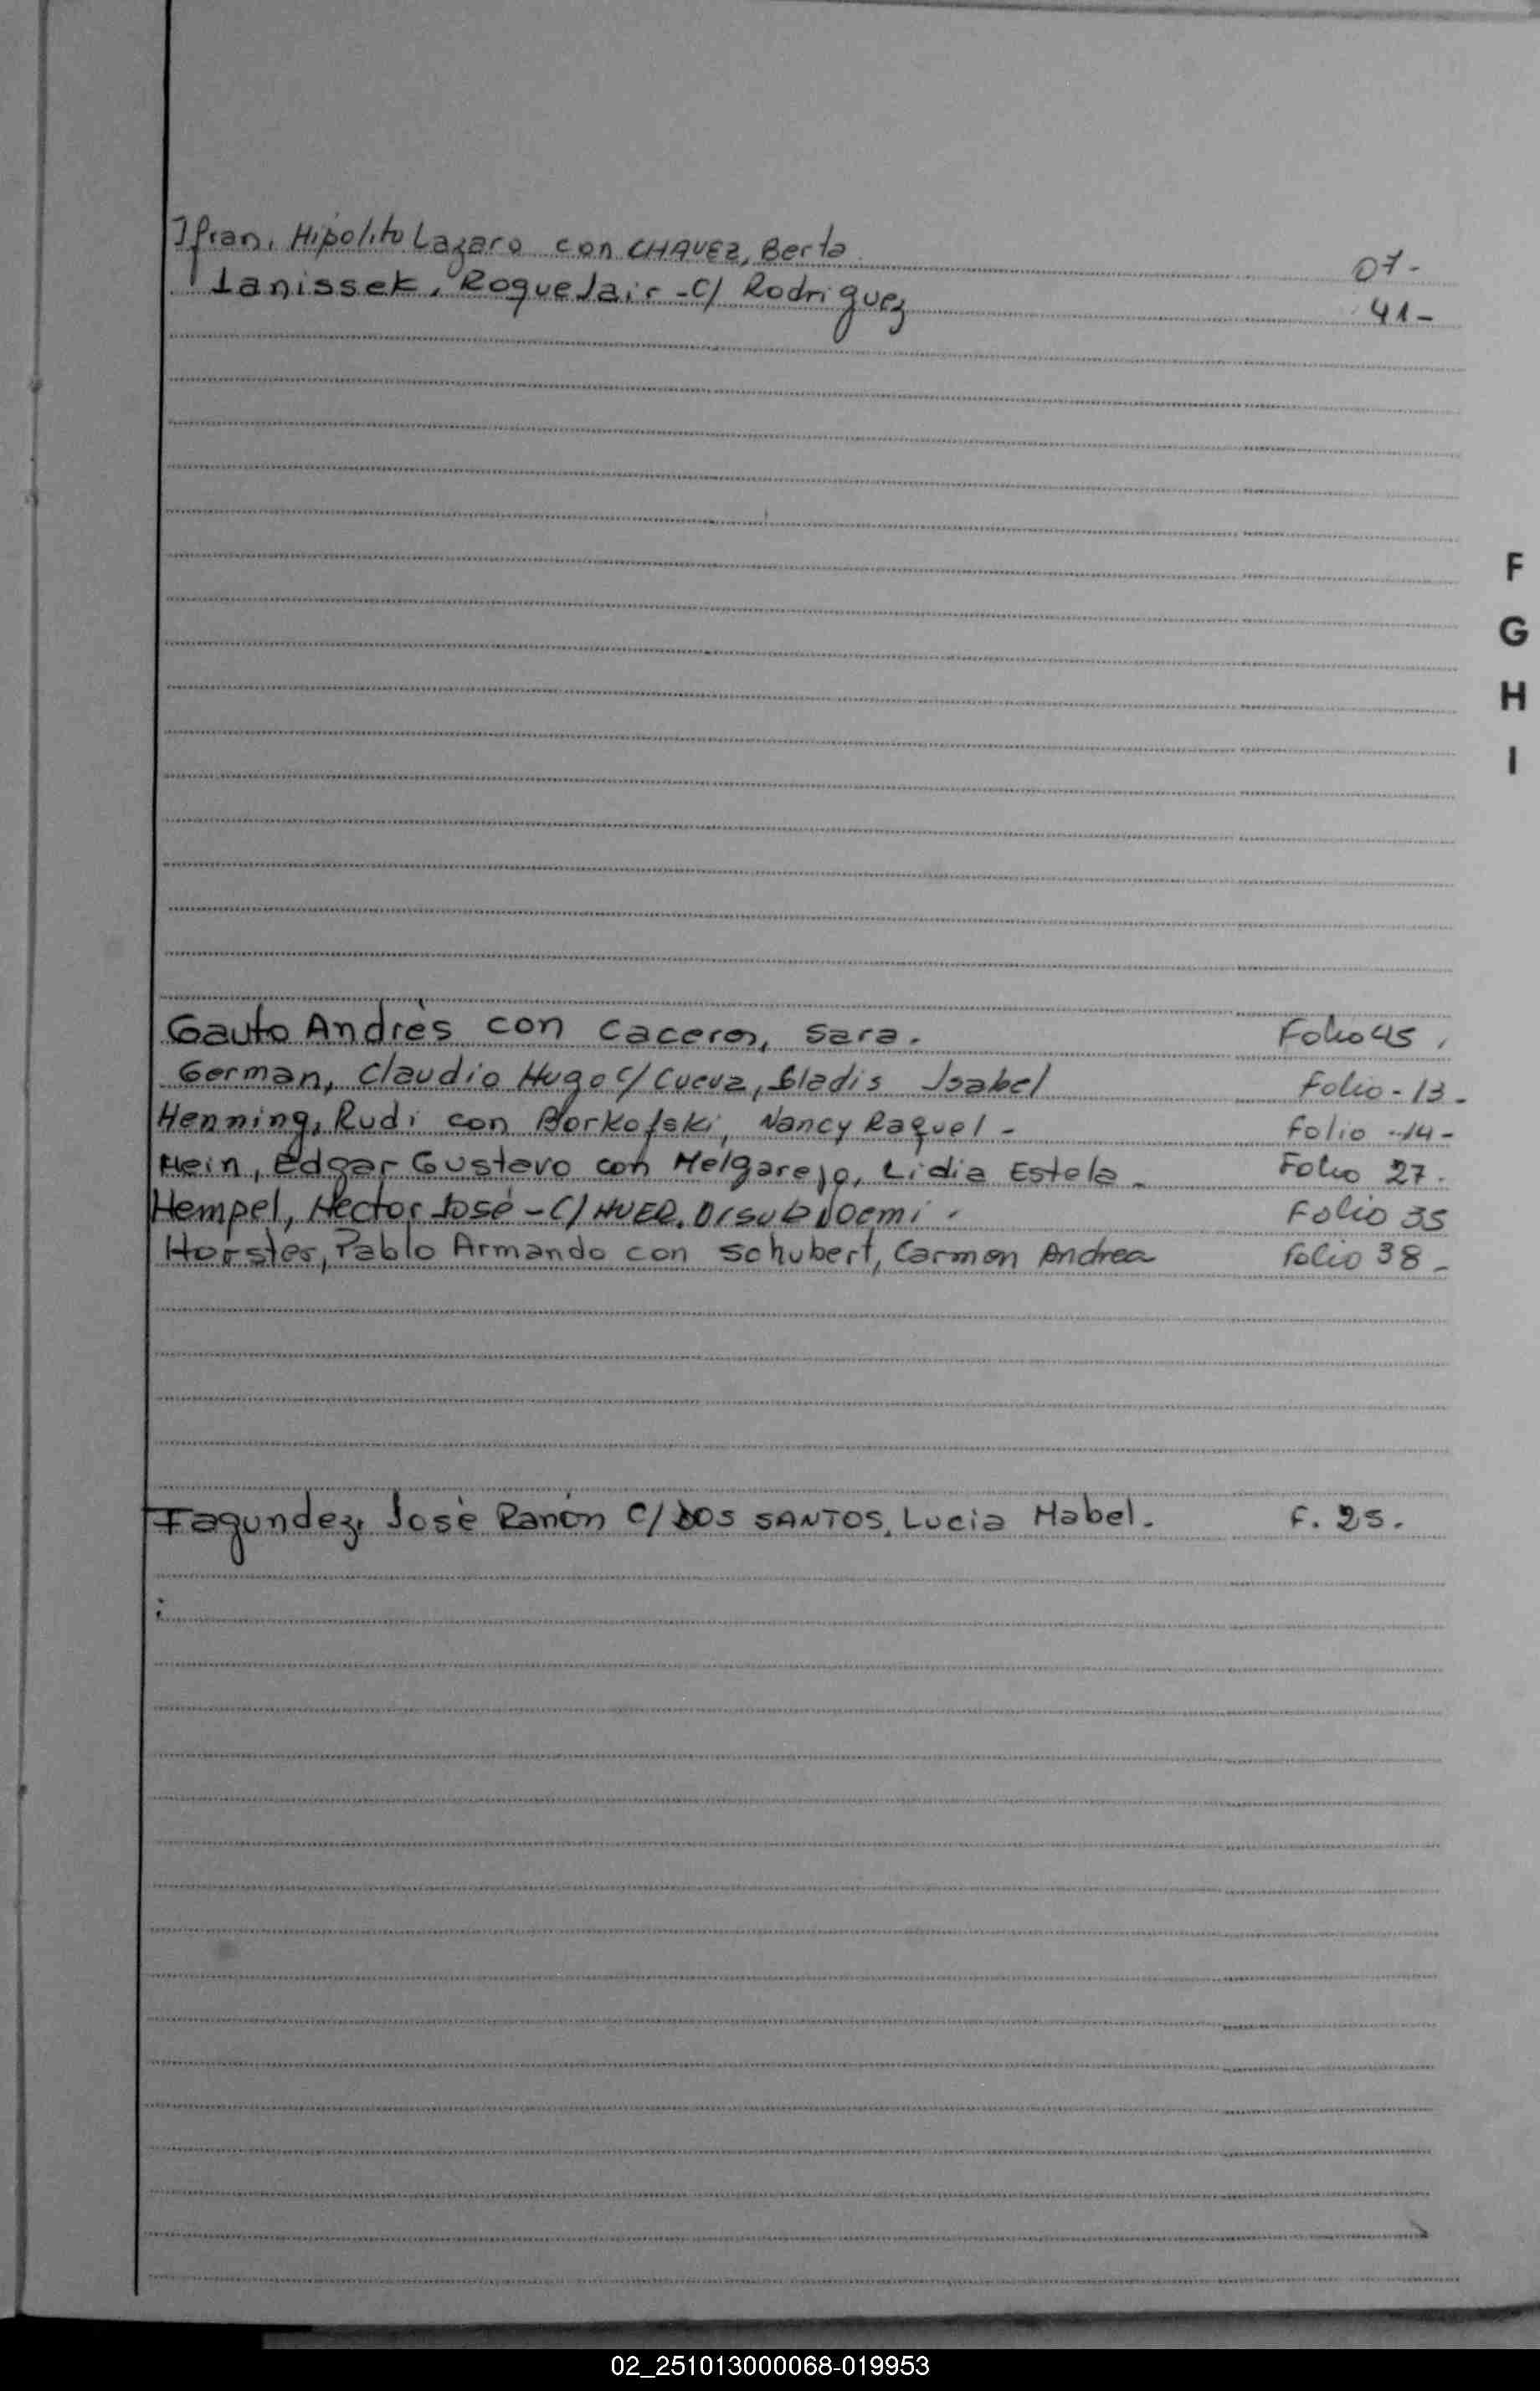 Ifran, Hipólito Lazaro con CHAVEZ, Berta 07-
Ianissek, Roque Jair - C/ Rodriguez 41-
F
G
H
I
Gauto Andrès con Caceres, Sara. Folio 45.
German, Claudio Hugo C/ Cueva, Gladis Isabel Folio - 13-
Henning, Rudi con Borkofski, Nancy Raquel - Folio -14-
Hein, Edgar Gustavo con Melgarejo, Lidia Estela. Folio 27.
Hempel, Hector José - C/ Noemi. Folio 35
Horster, Pablo Armando con Schubert, Carmen Andrea folio 38-
Fagundez, Josè Ramón C/ DOS SANTOS, Lucia Mabel. F. 25.
02_251013000068-019953